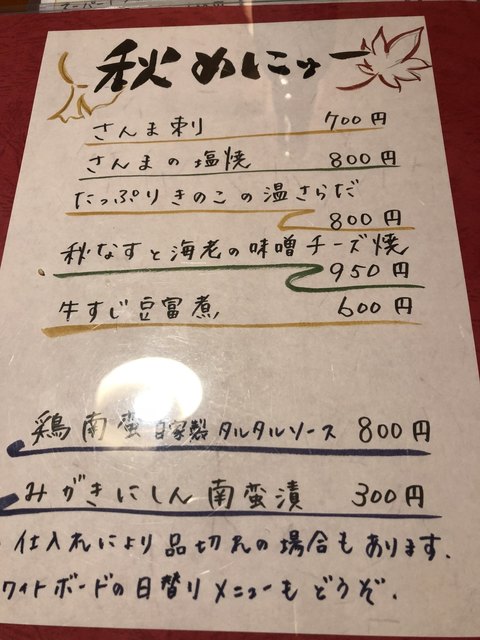 秋めにゅー
さんま刺 700円
さんまの塩焼 800円
たっぷりきのこの温さらだ
800円
秋なすと海老の味噌チーズ焼
950円
牛すじ豆富煮 600円
鶏南蛮自家製タルタルソース 800円
みがきにしん南蛮漬 300円
仕入れにより品切れの場合もあります.
ワイトボードの日替りメニューもどうぞ.